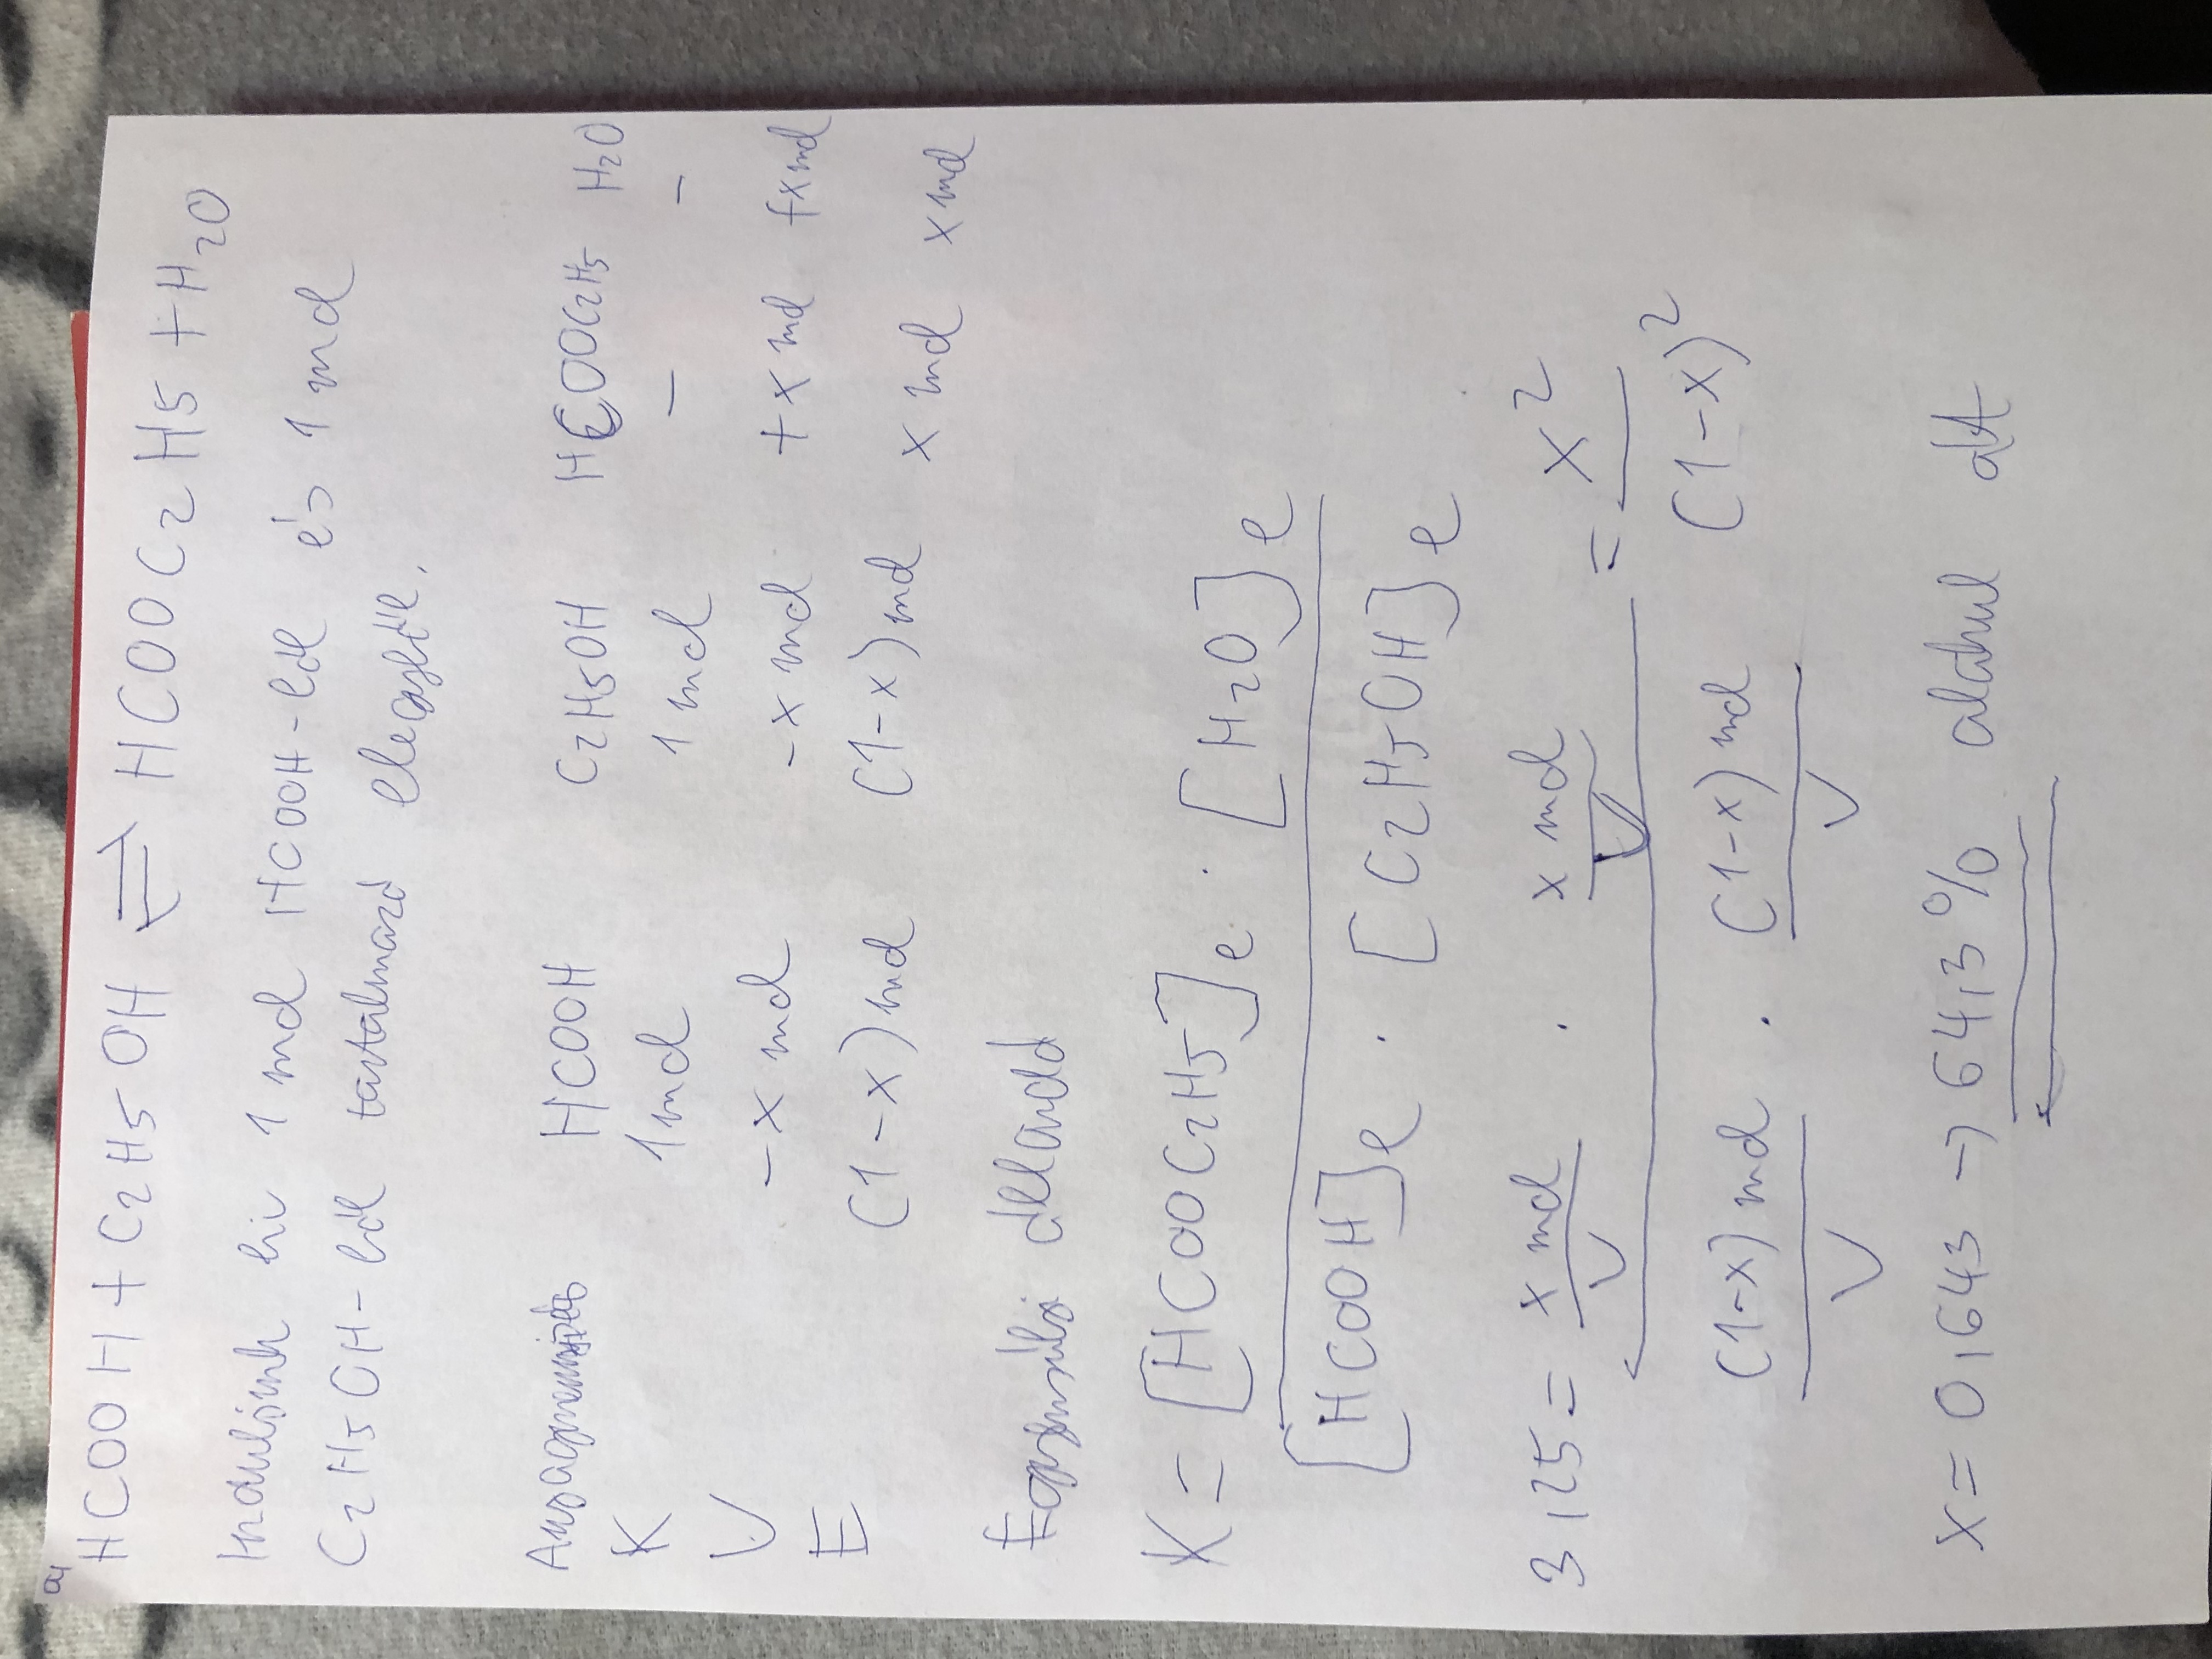 a,
HCOOH + C2H5OH ⇌ HCOOC2H5 + H2O
Induljunk ki 1 mol HCOOH-ból és 1 mol
C2H5OH-ból tartalmazó elegyből.
Anyagmennyiség HCOOH C2H5OH HCOOC2H5 H2O
K 1 mol 1 mol – –
V -x mol -x mol +x mol +x mol
E (1-x) mol (1-x) mol x mol x mol
Egyensúlyi állandó
K = [HCOOC2H5]e · [H2O]e
[HCOOH]e · [C2H5OH]e
3,25 = x mol/V · x mol/V = x²
(1-x) mol/V · (1-x) mol/V (1-x)²
x = 0,643 → 64,3% alakul át